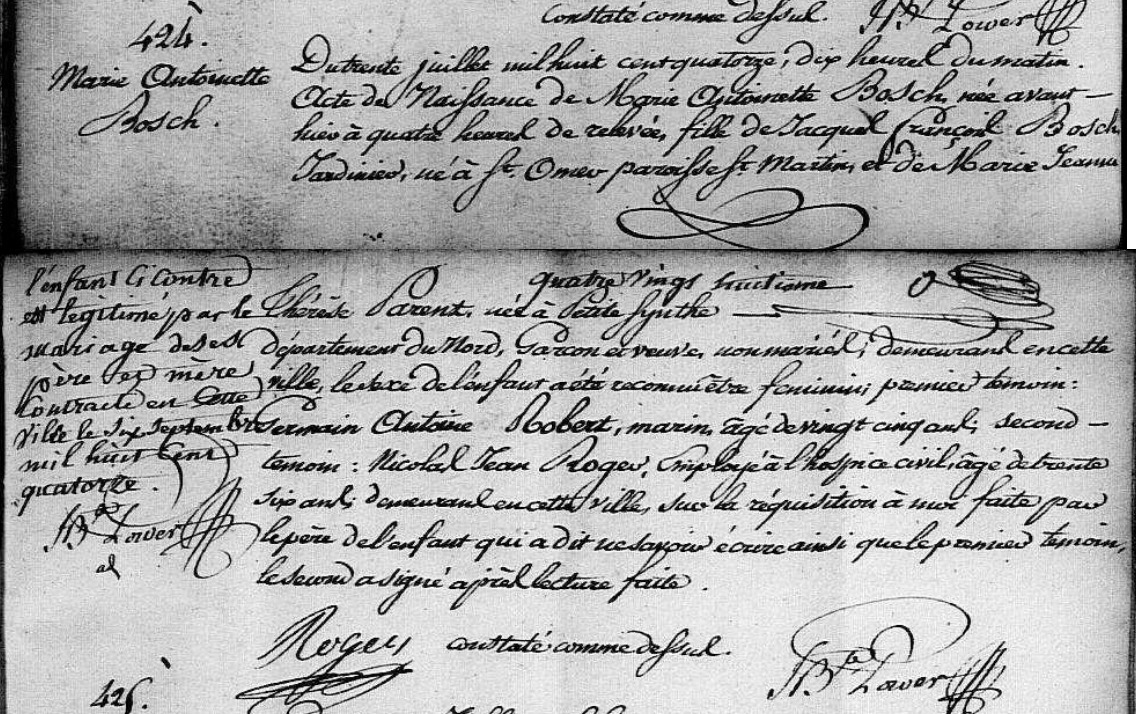 Constaté comme dessus. JBte Power
424.
Marie Antoinette
Bosch.
Du trente juillet mil huit cent quatorze, dix heures du matin.
Acte de Naissance de Marie Antoinette Bosch, née avant-
hier à quatre heures de relevée, fille de Jacques François Bosch
Jardinier, né à St. Omer paroisse St Martin, et de Marie Jeanne
quatre vingt huitieme
l'enfant Ci Contre
est légitimé, par le
mariage de ses
père et mère
Contracté en Cette
Ville le Six Septembre
mil huit Cent
quatorze.
Thérèse Parent, née à Petite Synthe
département du Nord, Garçon et veuve, non mariés, demeurans en cette
ville, le sexe de l'enfant a été reconnu être feminin; premier temoin:
Germain Antoine Robert, marin, âgé de vingt cinq ans; second
temoin: Nicolas Jean Roger, Employé à l'hospice civil, âgé de trente
six ans; demeurans en cette ville, sur la réquisition à moi faite par
le père de l'enfant qui a dit ne savoir écrire ainsi que le premier temoin,
le second a signé après lecture faite.
Roger constaté comme dessus.
425.